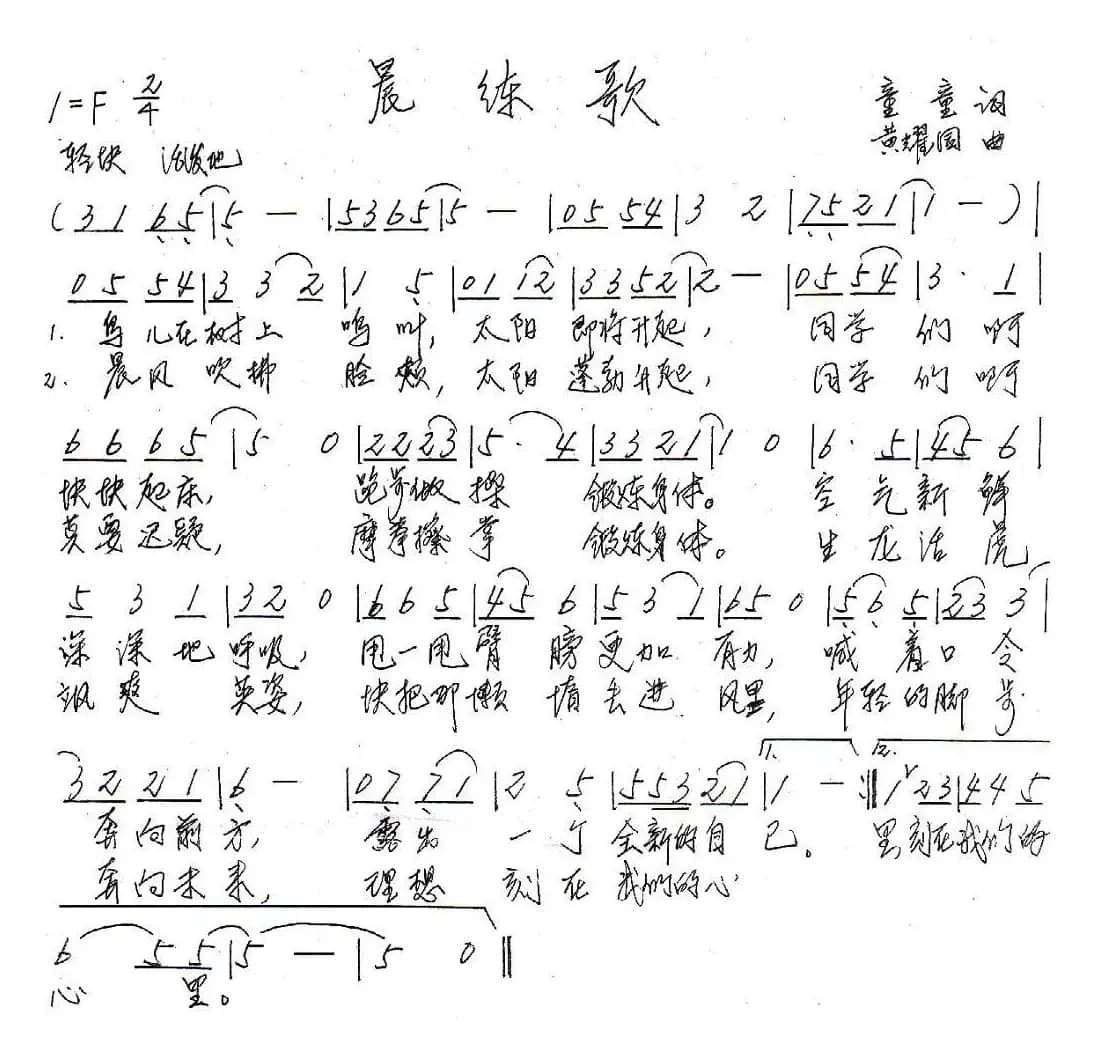 晨练歌
1=F 2/4
童童 词
黄耀国 曲
轻快 活泼地
(3 1 6 5|5 — |5 3 6 5|5 — |0 5 5 4|3 2 |7 5 2 1|1 — )|
0 5 5 4|3 3 2|1 5|0 1 1 2|3 3 5 2|2 — |0 5 5 4|3· 1|
1. 鸟儿在树上 鸣叫, 太阳 即将升起, 同学 们 啊
2. 晨风吹拂 脸颊, 太阳 蓬勃升起, 同学 们 啊
6 6 6 5|5 0|2 2 2 3|5· 4|3 3 2 1|1 0|6· 5|4 5 6|
快快起床, 跑步做操 锻炼身体。 空气新鲜
莫要迟疑, 摩拳擦掌 锻炼身体。 生龙活虎
5 3 1|3 2 0|6 6 5|4 5 6|5 3 1|6 5 0|5 6 5|2 3 3|
深深地呼吸, 甩一甩臂膀更加有力, 喊着口令
飒爽 英姿, 快把那懒惰丢进风里, 年轻的脚步
3 2 2 1|6 — |0 7 7 1|2 5|5 5 3 2 1|1. 1 — :‖2. 1 2 3|4 4 5
奔向前方, 露出 一个全新的自己。 里刻在我们的
奔向未来, 理想 刻在我们的心
6 5 5|5 — |5 0‖
心 里。